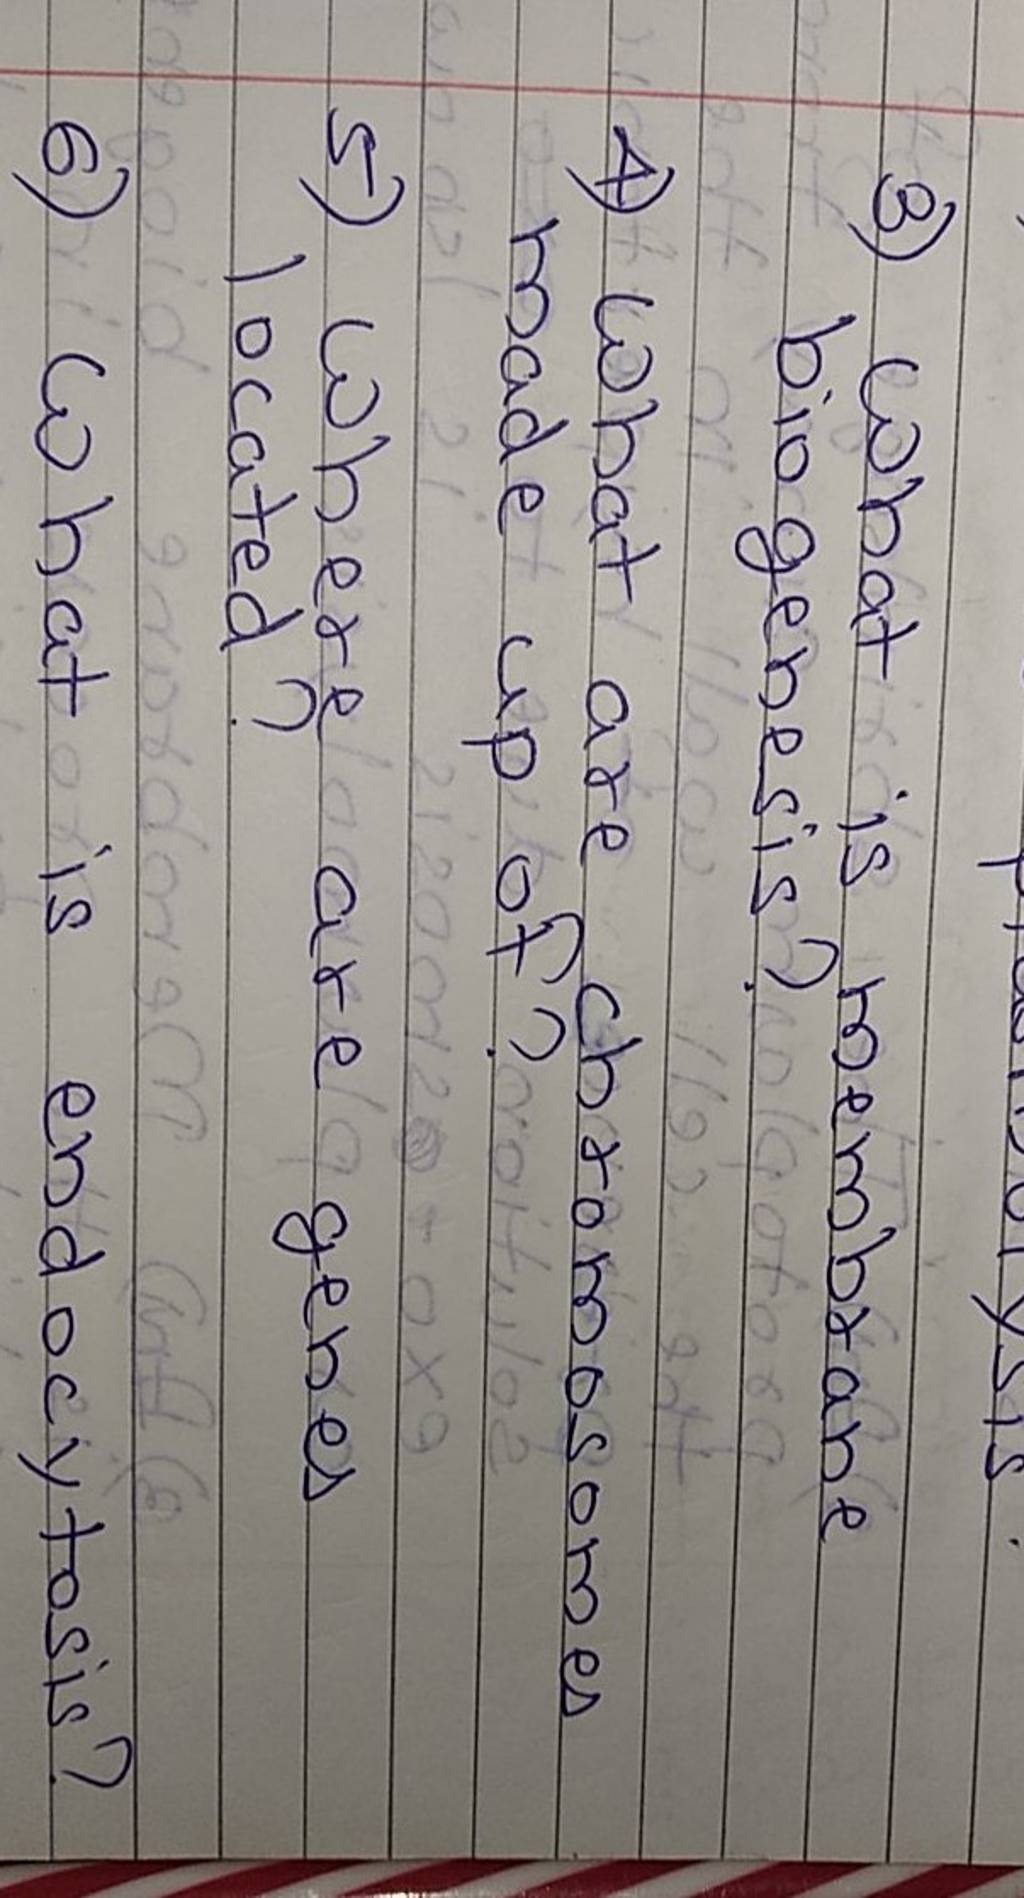 plasmolysis.
3) What is membrane
biogenesis?
4) What are chromosomes
made up of?
5) Where are genes
located?
6) What is endocytosis?